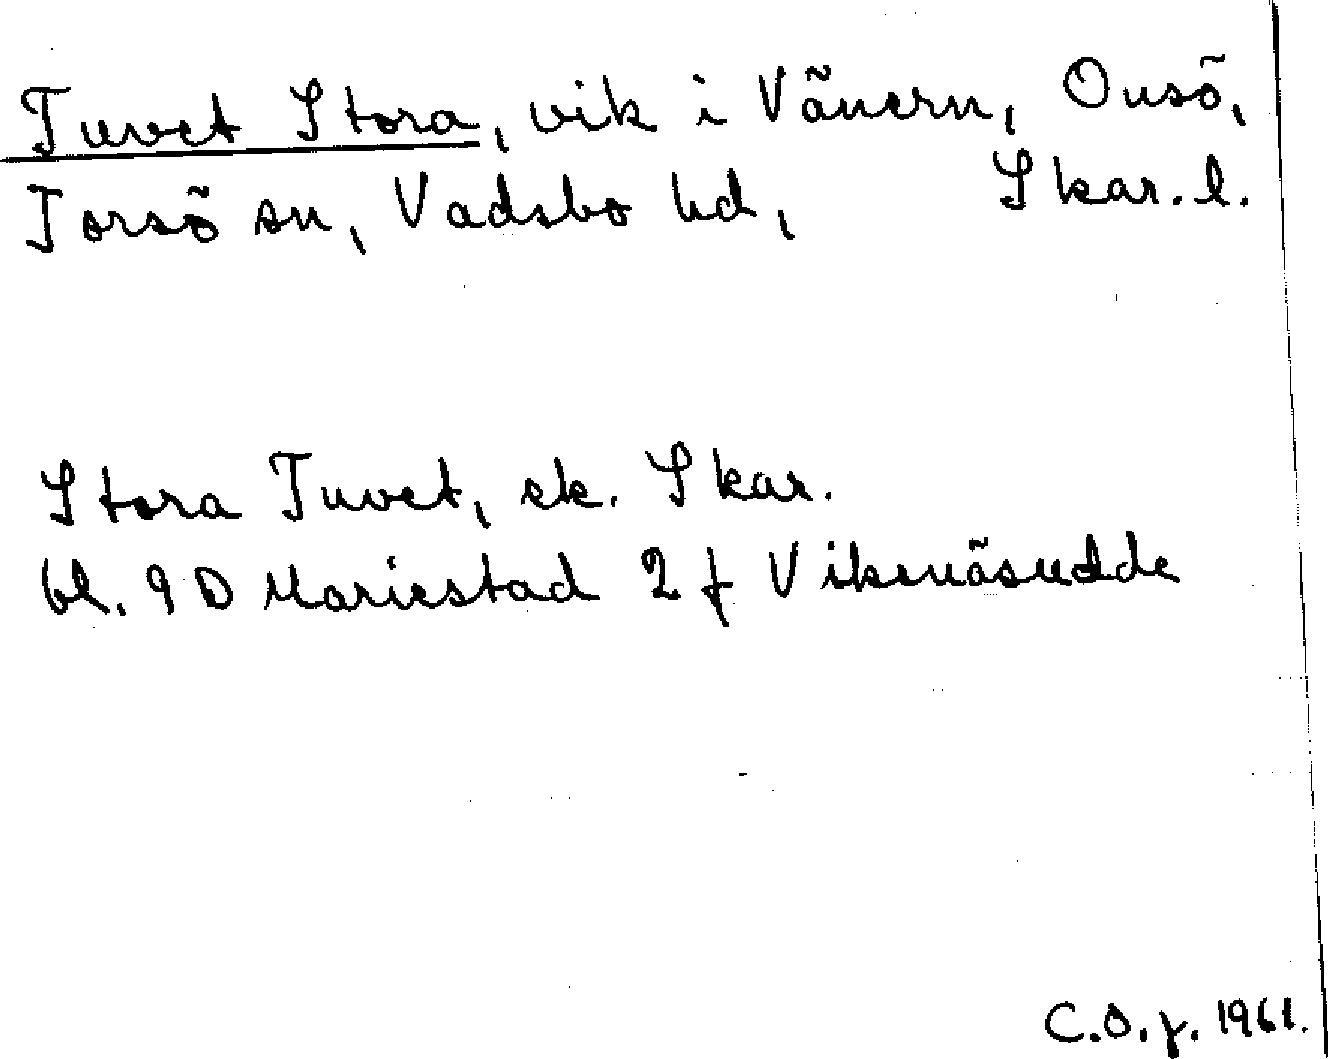 Tuvet Stora, vik i Vänern, Onsö,
Torsö sn, Vadsbo hd, Skar. l.
Stora Tuvet, ek. Skar.
bl. 9 D Mariestad 2 f Viksnäsudde
C.O.f. 1961.